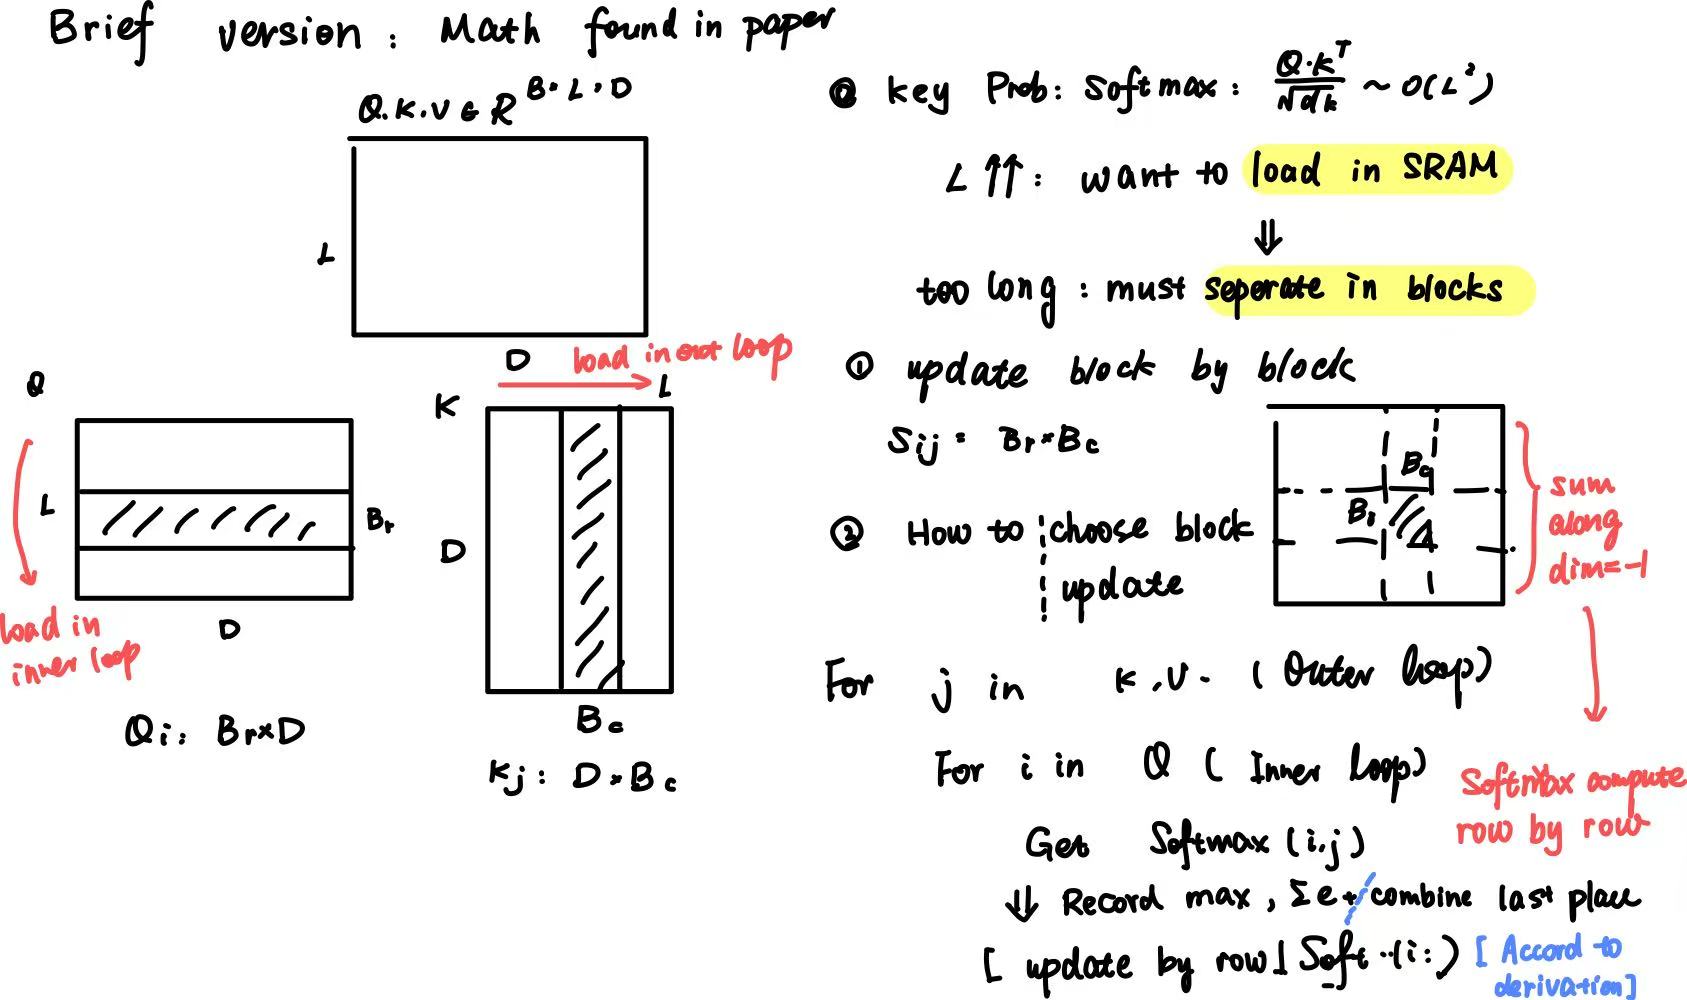 Brief version : Math found in paper
Q.K.V ∈ R^{B·L·D}
L
D
load in out loop
Q
L
Br
D
load in
inner loop
Qi: Br×D
K
L
D
Bc
Kj: D×Bc
key Prob: Softmax: Q·K^T/√dk ~ O(L²)
L ↑↑: want to load in SRAM
⇓
too long : must seperate in blocks
① update block by block
Sij = Br×Bc
② How to choose block
update
Bc
sum
along
dim=-1
For j in K,V- (Outer loop)
For i in Q (Inner loop)
Softmax compute
row by row
Get Softmax (i,j)
⇓ Record max, Σe + combine last place
[update by row] Soft··(i:) [Accord to
derivation]